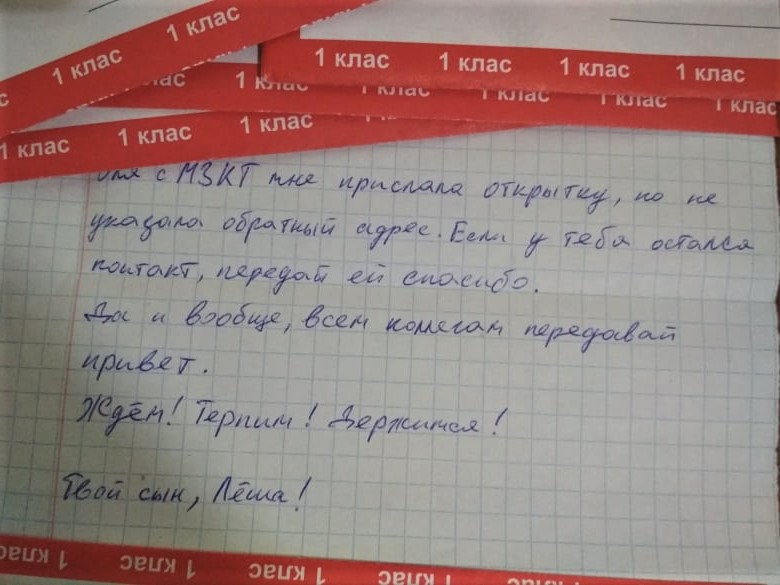 1 клас 1 клас
1 клас 1 клас 1 клас 1 клас
1 клас 1 клас 1 клас 1 клас
1 клас 1 клас 1 клас 1 клас
с МЗКТ мне прислала открытку, но не
указала обратный адрес. Если у тебя остался
контакт, передай ей спасибо.
Да и вообще, всем коллегам передавай
привет.
Ждём! Терпим! Держимся!
Твой сын, Лёша!
1 клас 1 клас 1 клас 1 клас 1 клас